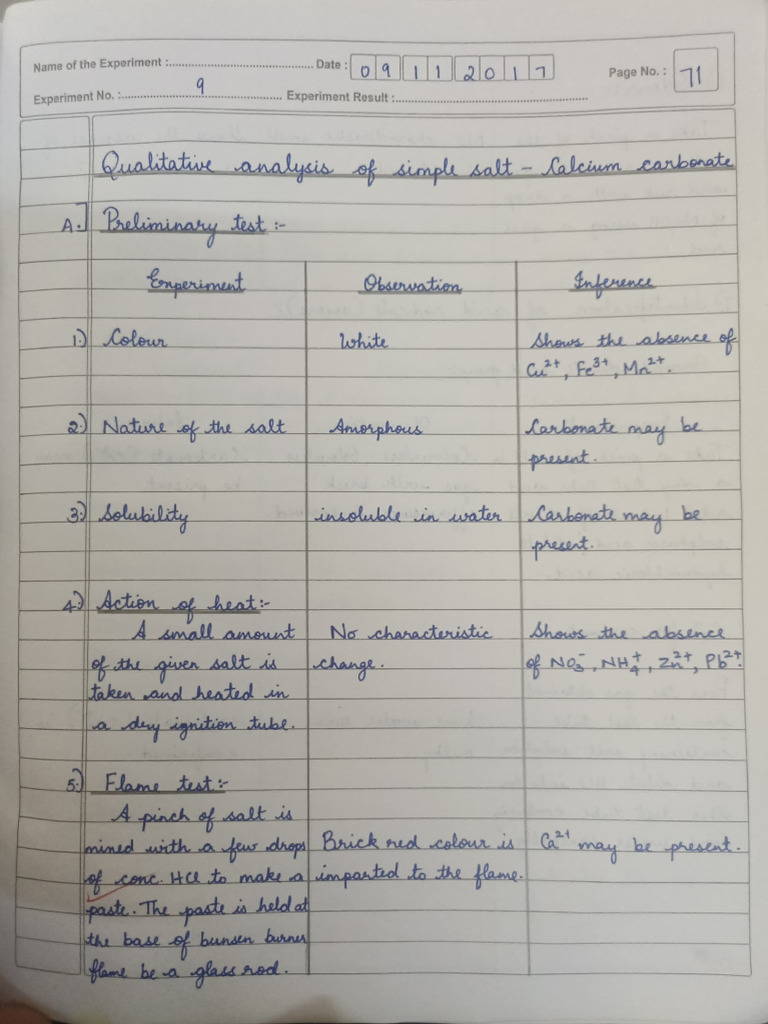 Name of the Experiment :........ Date : 09 11 2017
Page No. : 71
Experiment No. :........ 9 ........ Experiment Result :........
Qualitative analysis of simple salt – Calcium carbonate
A.] Preliminary test :-
Experiment Observation Inference
1.) Colour White Shows the absence of
Cu²⁺, Fe³⁺, Mn²⁺.
2.) Nature of the salt Amorphous Carbonate may be
present.
3.) Solubility insoluble in water Carbonate may be
present.
4.) Action of heat:-
A small amount No characteristic Shows the absence
of the given salt is change. of NO₃⁻, NH₄⁺, Zn²⁺, Pb²⁺.
taken and heated in
a dry ignition tube.
5.) Flame test:-
A pinch of salt is
mixed with a few drops Brick red colour is Ca²⁺ may be present.
of conc. HCl to make a imparted to the flame.
paste. The paste is held at
the base of bunsen burner
flame be a glass rod.